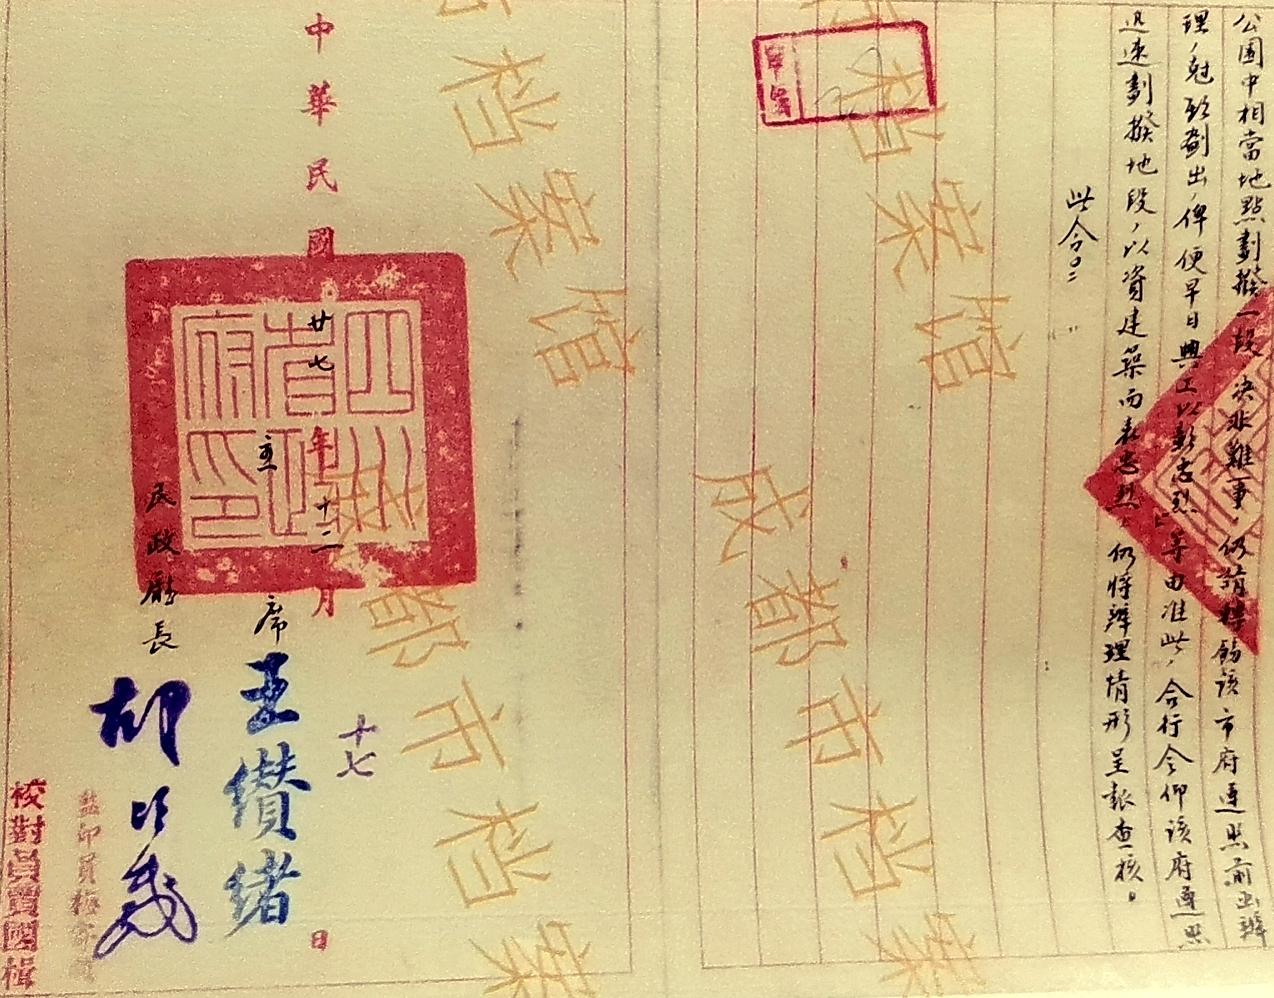 公園中相當地點劃撥一段，決非難事，仍請轉飭該市府遵照前函辦
理，尅期劃出，俾便早日興工以彰忠烈」等由准此，合行令仰該府遵照
迅速劃撥地段，以資建築而表忠烈。仍將辦理情形呈報查核。
此令。
中華民國廿七年十二月十七日
主席王纘緒
民政廳長胡次威
四川省政府印
監印員梅
校對員賈國楫
成都市檔案館
成都市檔案館